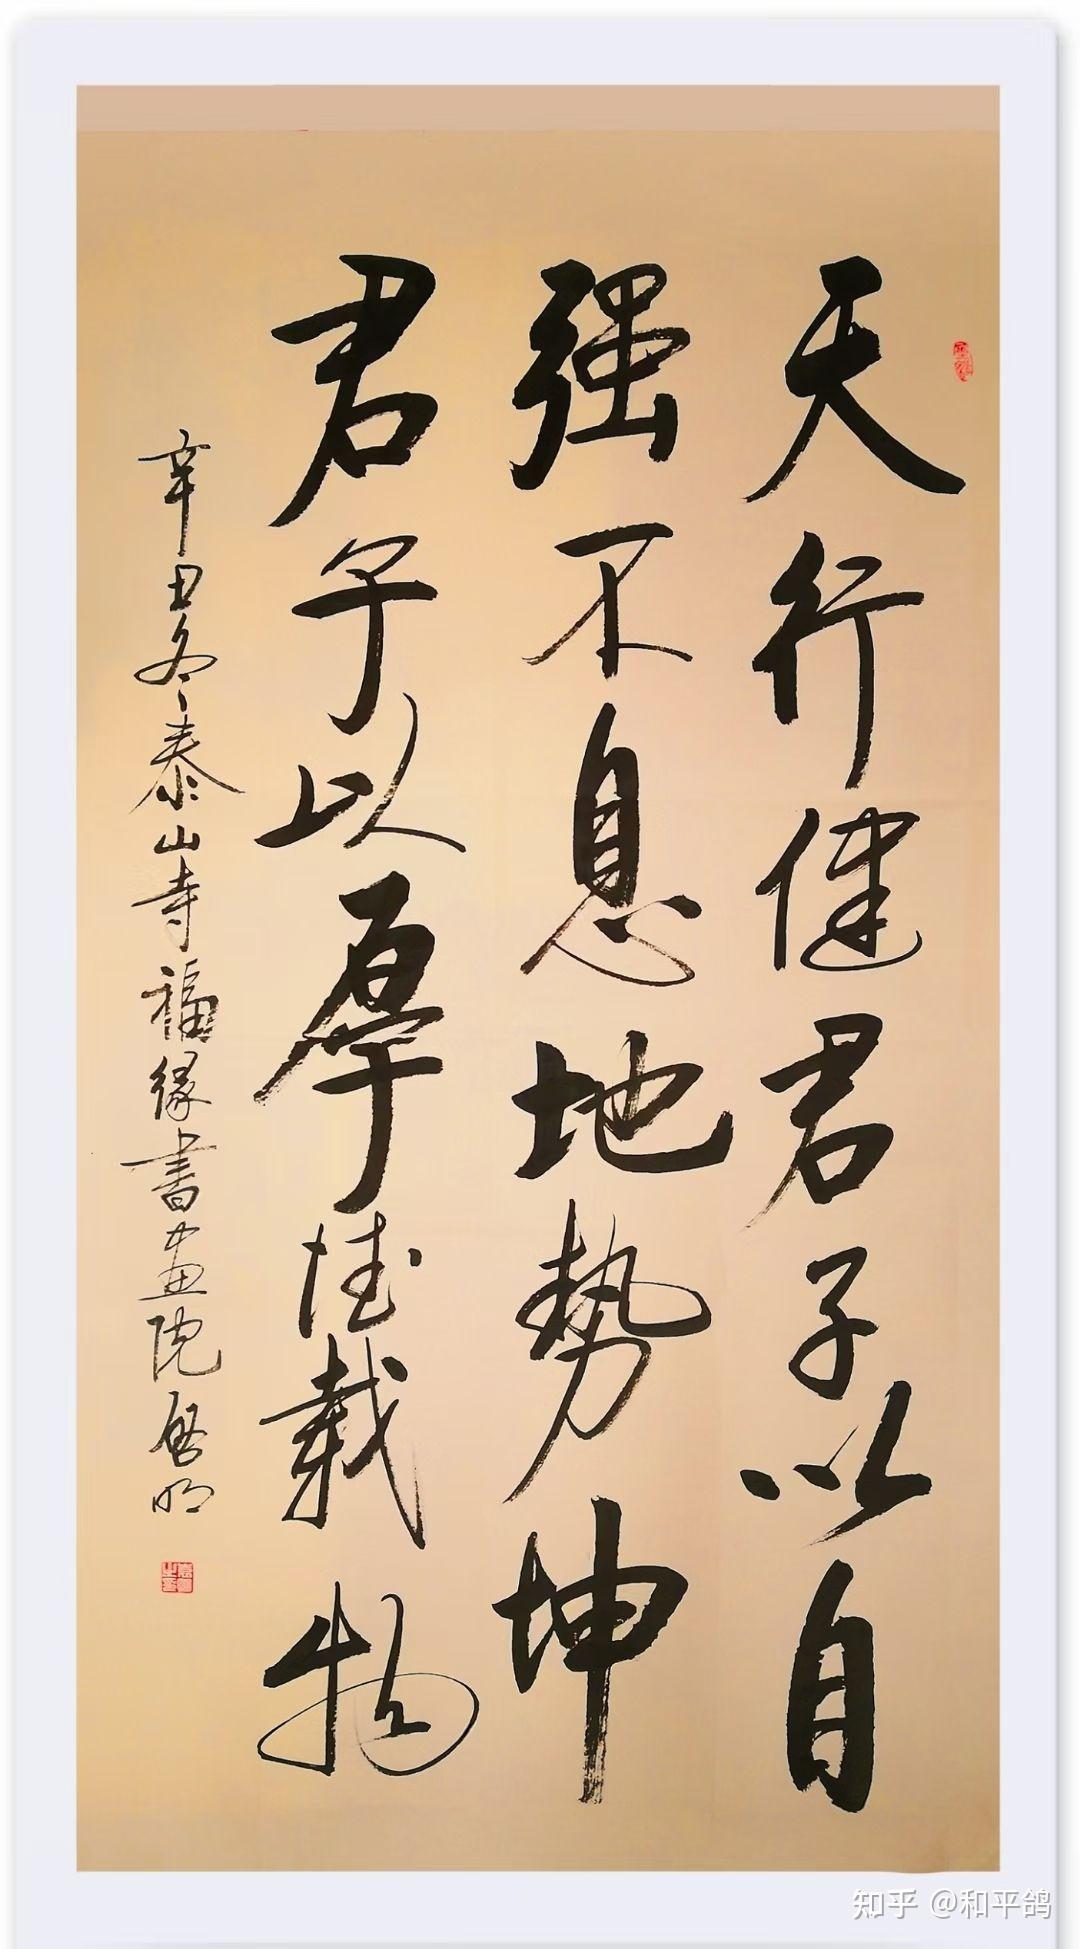 天行健君子以自
强不息地势坤
君子以厚德载物
辛丑冬泰山寺福缘書画院启明
知乎 @和平鸽